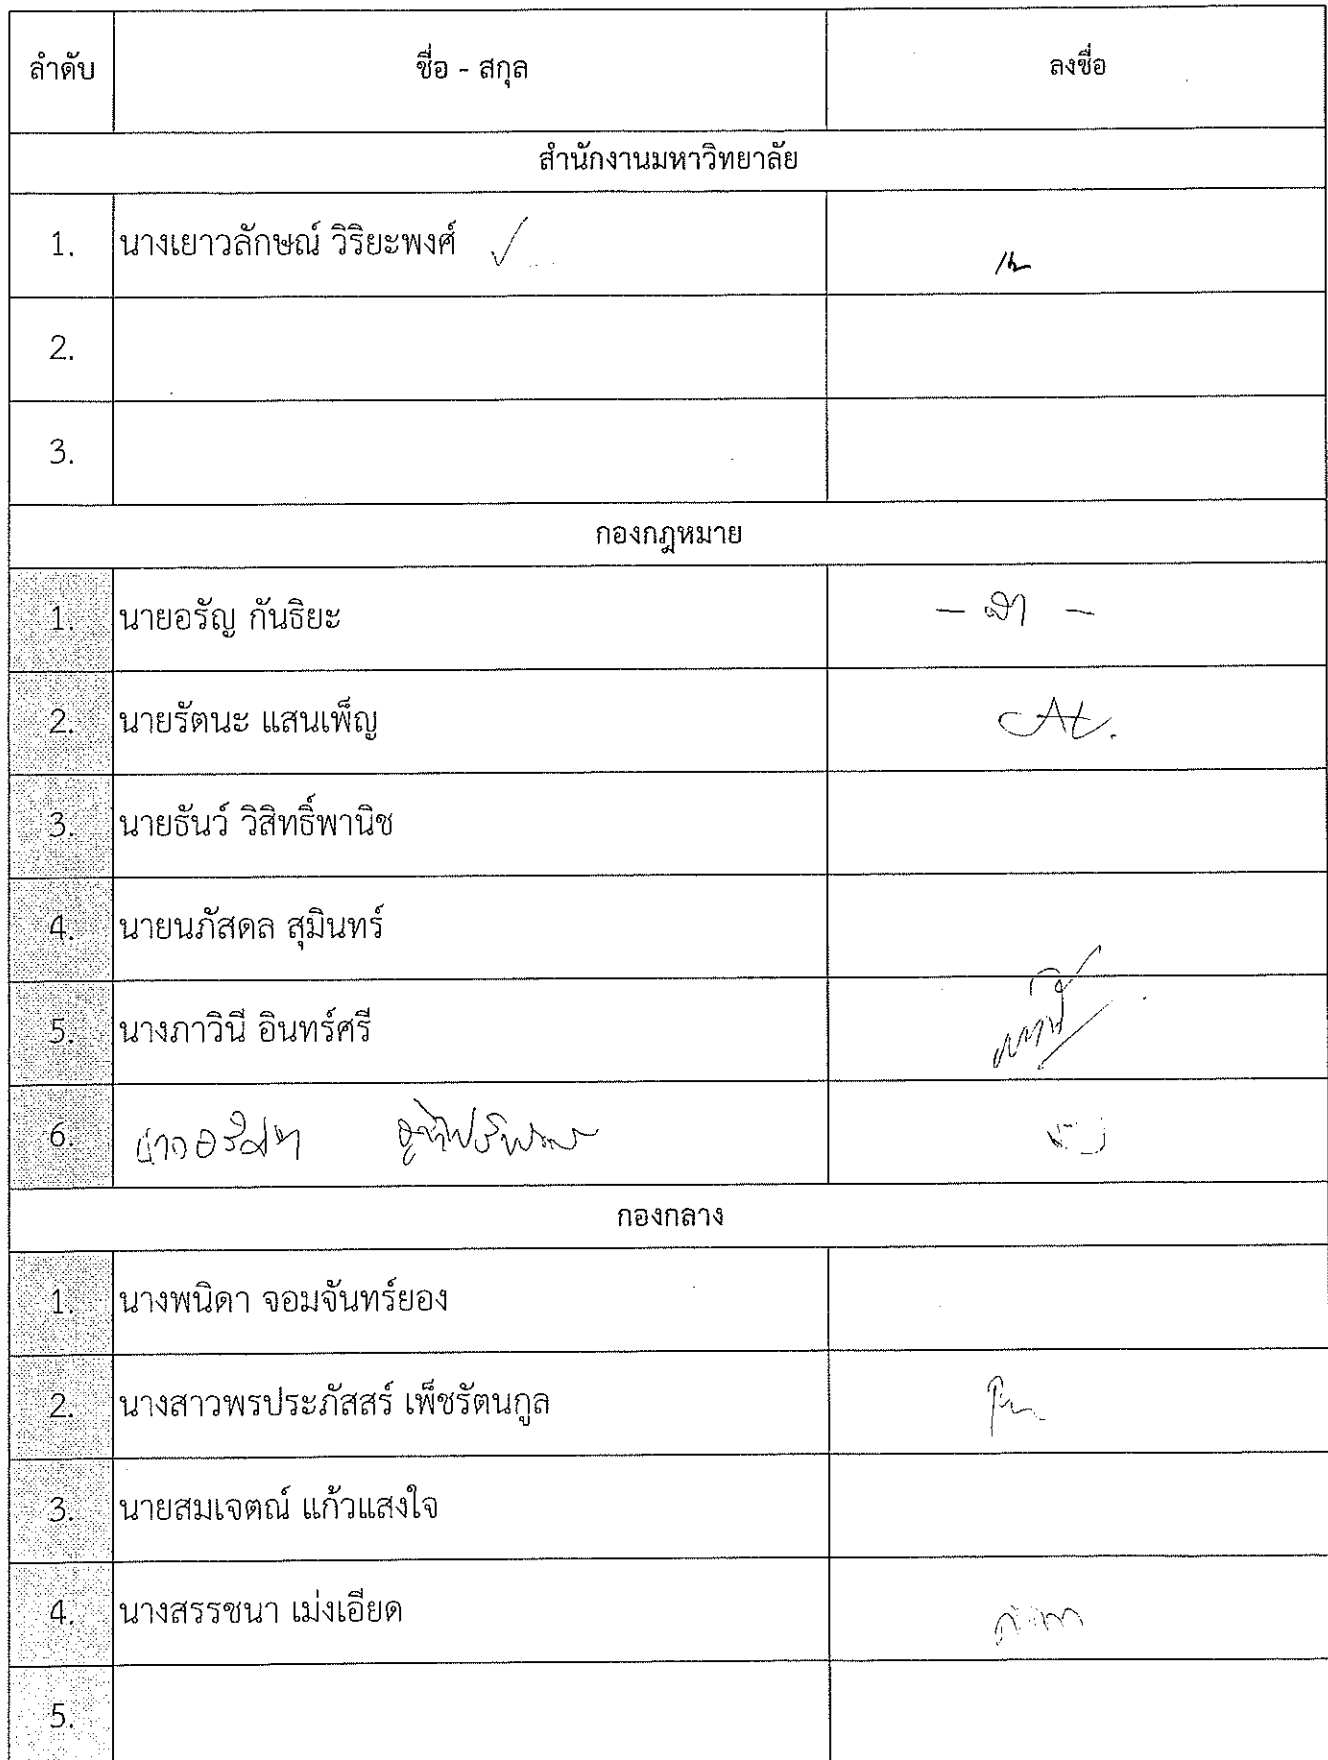 ลำดับ ชื่อ - สกุล ลงชื่อ
สำนักงานมหาวิทยาลัย
1. นางเยาวลักษณ์ วิริยะพงศ์ ✓
2.
3.
กองกฎหมาย
1. นายอรัญ กันธิยะ
2. นายรัตนะ แสนเพ็ญ
3. นายธันว์ วิสิทธิ์พานิช
4. นายนภัสดล สุมินทร์
5. นางภาวินี อินทร์ศรี
6.
กองกลาง
1. นางพนิดา จอมจันทร์ยอง
2. นางสาวพรประภัสสร์ เพ็ชรัตนกูล
3. นายสมเจตณ์ แก้วแสงใจ
4. นางสรรชนา เม่งเอียด
5.